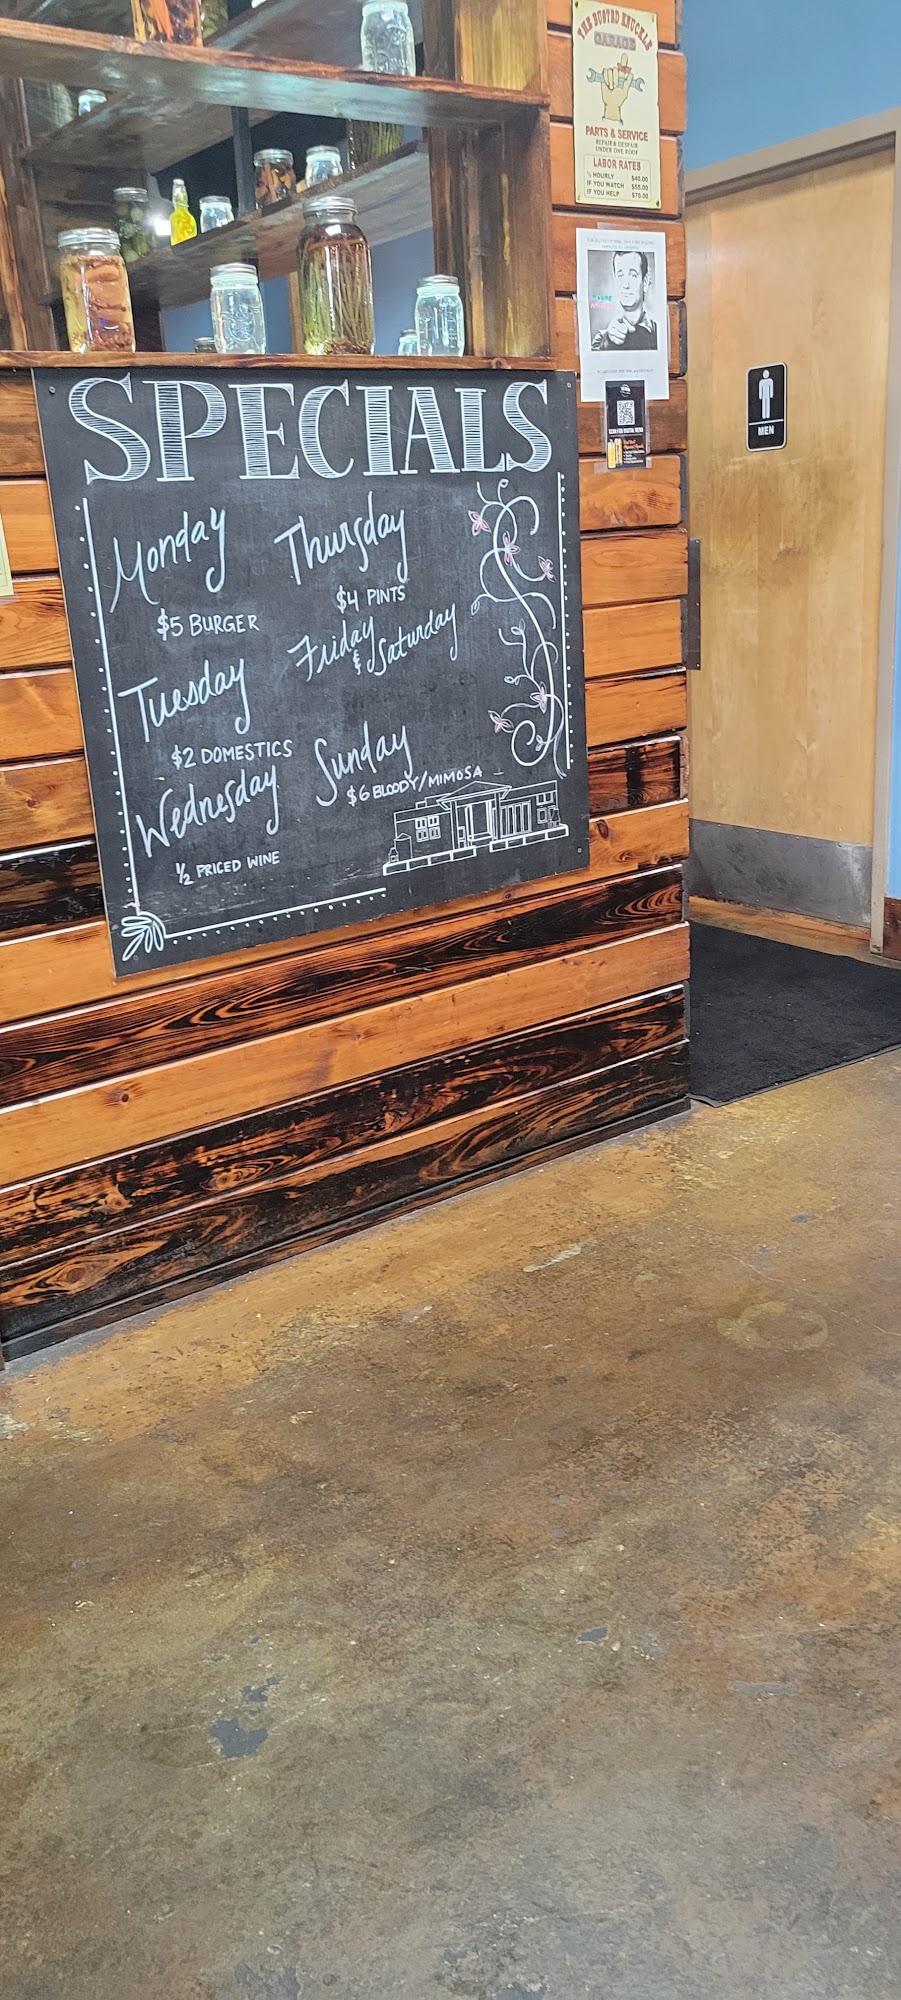 THE BUSTED KNUCKLE
GARAGE
PARTS & SERVICE
REPAIR & DESPAIR
UNDER ONE ROOF
LABOR RATES
½ HOURLY $40.00
IF YOU WATCH $55.00
IF YOU HELP $70.00
SCAN FOR DIGITAL MENU
MEN
SPECIALS
Monday
$5 BURGER
Tuesday
$2 DOMESTICS
Wednesday
½ PRICED WINE
Thursday
$4 PINTS
Friday
& Saturday
Sunday
$6 BLOODY/MIMOSA